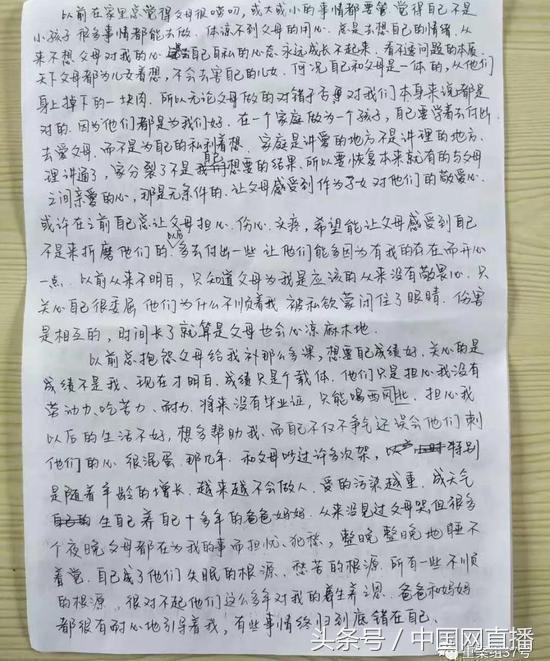 以前在家里总觉得父母很唠叨，或大或小的事情都要管 觉得自己不是
小孩子 很多事情都能去做，体谅不到父母的用心 总是去想自己的情绪 从
来不想父母对我的心 自己自私的心态 永远成长不起来，看不透问题的本质
天下父母都为儿女着想，不会去害自己的儿女，何况自己和父母是一体的，从他们
身上掉下的一块肉，所以无论父母做的对错于否再对我们本身来说都是
对的，因为他们都是为我们好，在一个家庭做为一个孩子，自己要学着去付出
去爱父母，而不是为自己的私利着想，家庭是讲爱的地方不是讲理的地方，
理讲通了，家分裂了不是自己想要的结果，所以要恢复本来就有的与父母
之间亲爱的心，那是无条件的，让父母感受到作为子女对他们的敬爱心，
或许在之前自己总让父母担心、伤心、头疼，希望能让父母感受到自己
不是来折磨他们的，多去付出一些 让他们能多因为有我的存在而开心
一点，以前从来不明白，只知道父母为我是应该的从来没有敬畏心，只
关心自己很委屈 他们为什么不顺着我 被私欲蒙闭住了眼睛，伤害
是相互的，时间长了就算是父母也会心凉麻木地，
以前总抱怨父母给我补那么多课，想要自己成绩好，关心的是
成绩不是我，现在才明白，成绩只是个载体，他们只是担心我没有
劳动力、吃苦力、耐力，将来没有毕业证，只能喝西北，担心我
以后的生活不好，想多帮助我，而自己不仅不争气还误会他们刺
他们的心 很混蛋，那几年，和父母吵过许多次架，特别
是随着年龄的增长，越来越不会做人，爱的污染越重，成天气
生自己养自己十多年的爸爸妈妈，从来没见过父母哭，但很多
个夜晚父母都在为我的事而担忧、犯愁，整晚整晚地睡不
着觉，自己成了他们失眠的根源，愁苦的根源，所有一些不顺
的根源，很对不起他们这么多年对我的养生养之恩，爸爸和妈妈
都很有耐心地引导着我，有些事情终归到底错在自己，
头条号／中国网直播
重案组37号